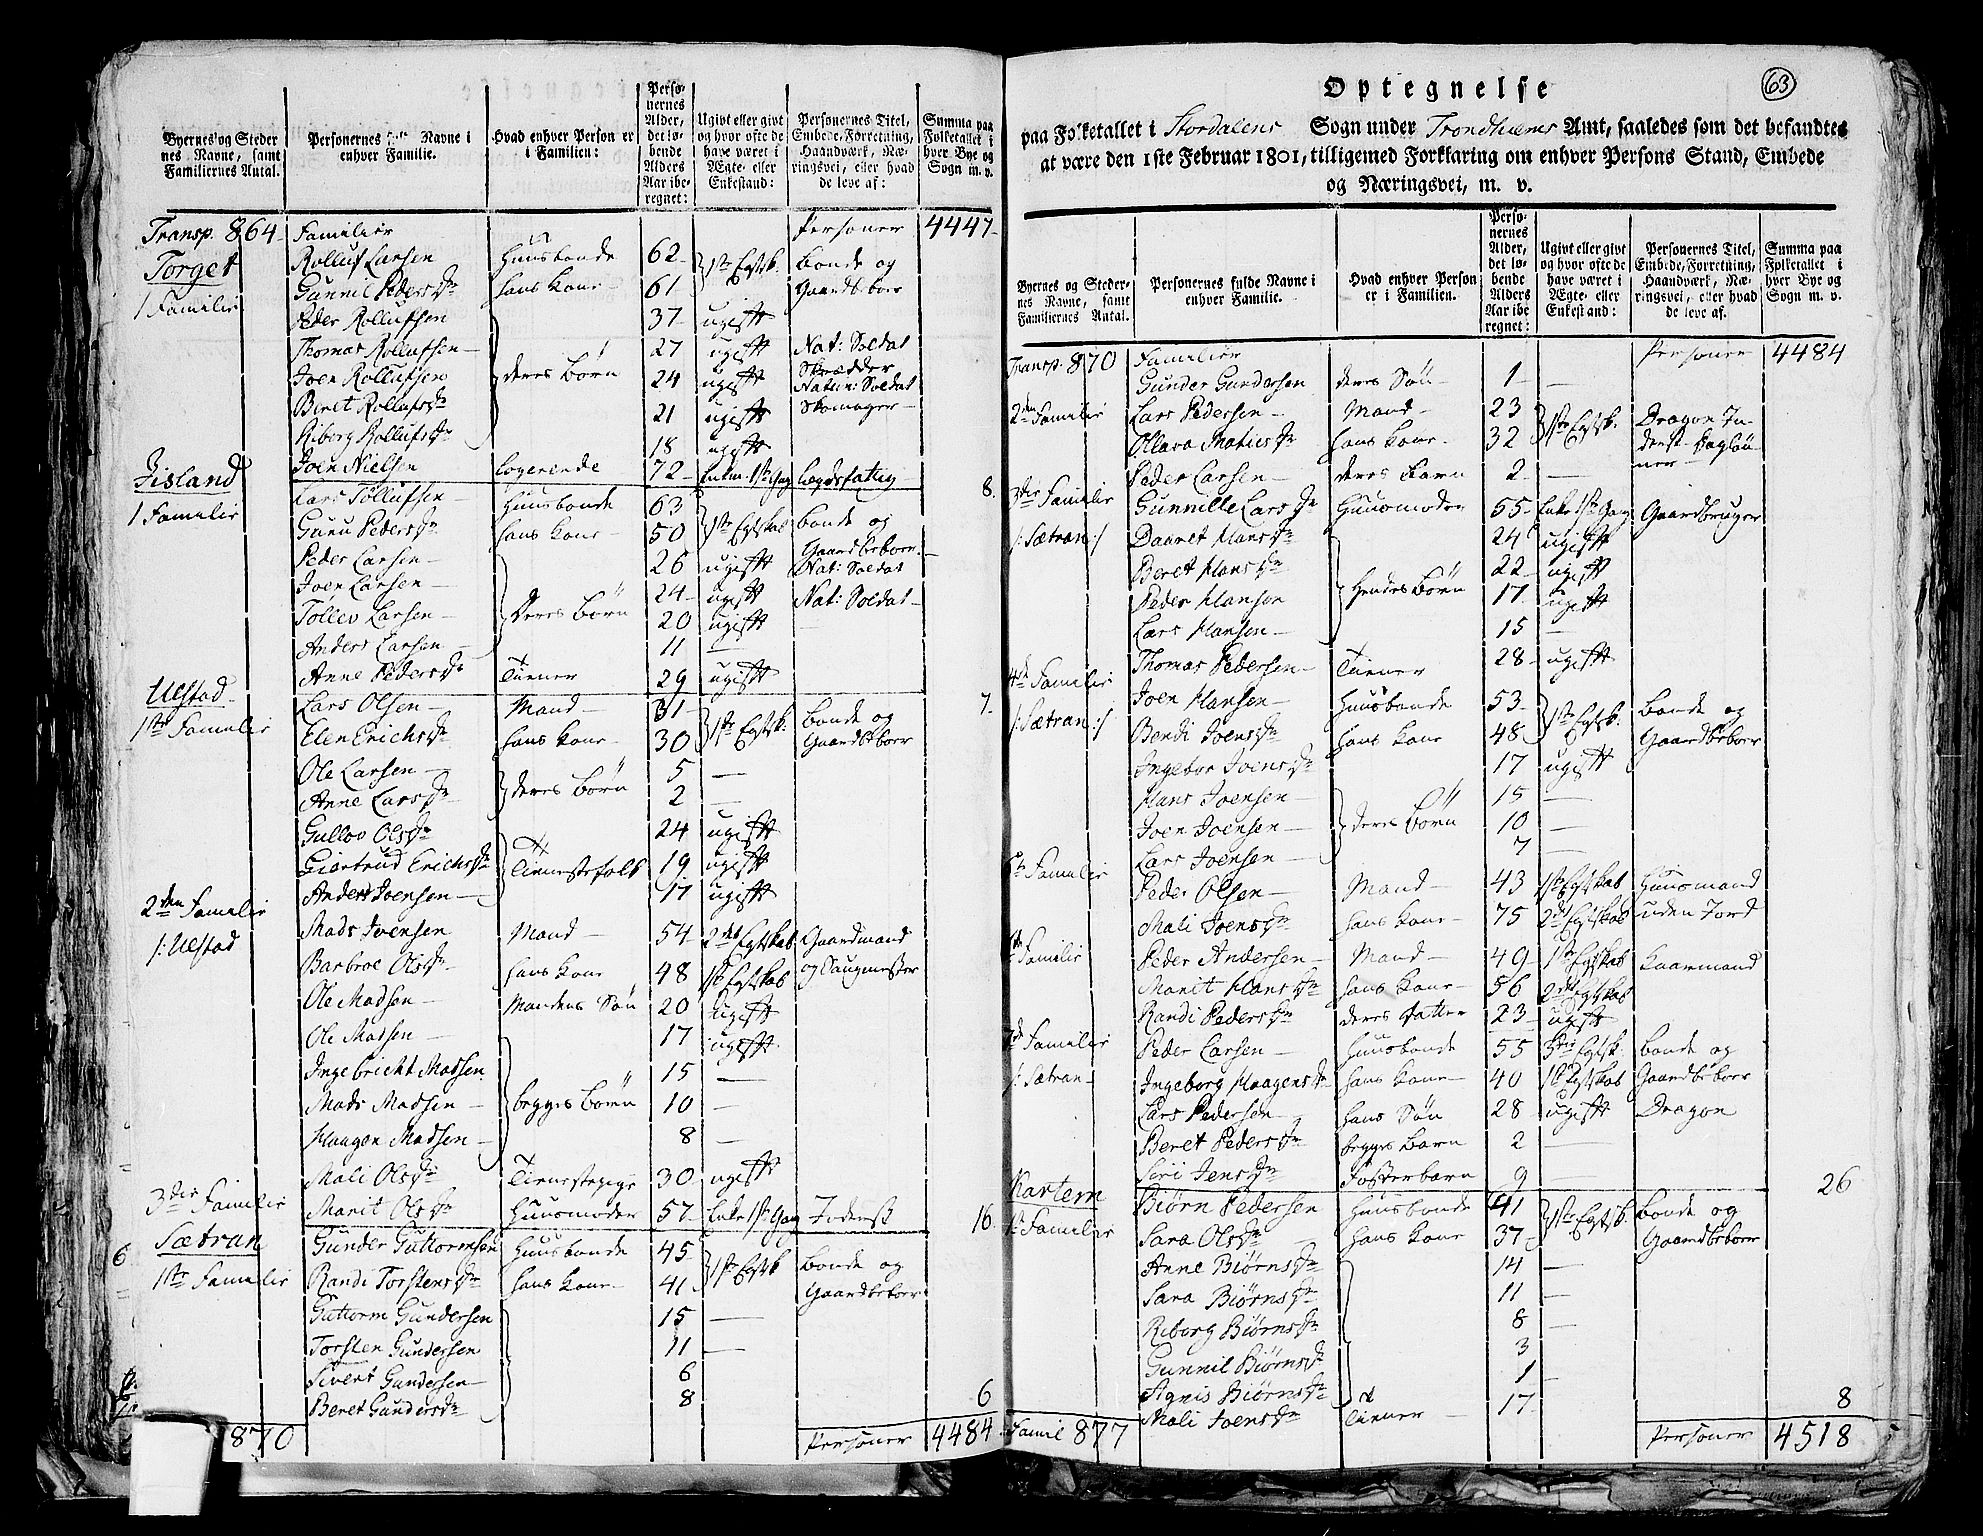 Byernes og Steder
nes Navne, samt
Familiernes Antal.
Personernes fulde Navne i
enhver Familie.
Hvad enhver Person er
i Familien:
Perso-
nernes
Alder,
det lø-
bende
Alders
Aar ibe
regnet:
Ugivt eller givt
og hvor ofte de
have været i
Ægte- eller
Enkestand:
Personernes Titel,
Embede, Forretning,
Haandværk, Næ-
ringsvei, eller hvad
de leve af:
Summa paa
Folketallet i
hver Bye og
Sogn m. v.
Transp. 864 Familier Personer 4447
Torget Rolluf Larsen Huusbonde 62 1ste Egtsk. Bonde og
Gunnil Pedersdr hans Kone 61 Gaardbeboer
1 Familie Peder Rollufsen 37 ugift
Thomas Rollufsen 27 ugift Nat: Soldat
Joen Rollufsen deres Børn 24 ugift Skrædder Natur: Soldat
Beret Rollufsdr 21 ugift Skomager
Riborg Rollufsdr 18 ugift
Joen Nielsen logerende 72 Enkem. 1ste Gang Lægdsfattig 8.
Gisland Lars Tollufsen Huusbonde 63 1ste Egtskab Bonde og
1 Familie Guru Pedersdr hans Kone 50 Gaardbeboer
Peder Larsen 26 ugift Nat: Soldat
Joen Larsen 24 ugift Nat: Soldat
Tollev Larsen Deres Børn 20 ugift
Anders Larsen 11 —
Anne Pedersdr Tiener 29 ugift 7.
Ulstad Lars Olsen Mand 31 1ste Egtsk. Bonde og
1ste Familie Elen Erichsdr hans Kone 30 Gaardbeboer
Ole Larsen deres Børn 5 —
Anne Larsdr 2 —
Gullov Olsdr 24 ugift
Giertrud Erichsdr Tienestefolk 19 ugift
Anders Joensen 17 ugift
2den Familie Mads Joensen Mand 54 2det Egtskab Gaardmand
/: Ulstad Barbroe Olsdr hans Kone 48 1ste Egtskab og Saugmester
Ole Madsen Mandens Søn 20 ugift
Ole Madsen 17 ugift
Ingebricht Madsen 15 —
Mads Madsen begges Børn 10 —
Haagen Madsen 8 —
Mali Olsdr Tienestepige 30 ugift
3die Familie Marit Olsdr Huusmoder 57 Enke 1ste Gang Inderst 16.
Sætran Gunder Guttormsen Huusbonde 45 1ste Egtsk Bonde og
6 1ste Familie Randi Torstensdr hans Kone 41 Gaardbeboer
Guttorm Gundersen 15 —
Torsten Gundersen 11 —
Sivert Gundersen 6
Beret Gundersdr 8 6
870 Personer 4484
63
Optegnelse
paa Folketallet i Stordalens Sogn under Trondhiems Amt, saaledes som det befandtes
at være den 1ste Februar 1801, tilligemed Forklaring om enhver Persons Stand, Embede
og Næringsvei, m. v.
Byernes og Steder-
nes Navne, samt
Familiernes Antal.
Personernes fulde Navne i
enhver Familie.
Hvad enhver Person
er i Familien.
Perso-
nernes
Alder,
det lø-
bende
Alders
Aar ibe
regnet:
Ugivt eller givt
og hvor ofte de
have været i
Ægte- eller
Enkestand:
Personernes Titel,
Embede, Forretning,
Haandværk, Næ-
ringsvei, eller hvad
de leve af.
Summa paa
Folketallet i
hver Bye og
Sogn m. v.
Transp. 870 Familier Personer 4484
Gunder Gundersen deres Søn 1 —
2den Familie Lars Pedersen Mand 23 1ste Egtsk. Dragon In-
Ollava Matiesdr hans Kone 32 derst Dagløn-
Peder Larsen deres Barn 2 — ner
3die Familie Gunnille Larsdr Huusmoder 55 Enke 1ste Gang Gaardbruger
/: Sætran :/ Daaret Hansdr 24 ugift
Beret Hansdr 22 ugift
Peder Hansen Hendes Børn 17 ugift
Lars Hansen 15 —
Thomas Pedersen Tiener 28 ugift
4de Familie Joen Hansen Huusbonde 53 1ste Egtsk. Bonde og
/: Sætran :/ Bendi Joensdr hans Kone 48 Gaardbeboer
Ingebor Joensdr 17 ugift
Hans Joensen 15 —
Joen Joensen deres Børn 10 —
Lars Joensen 7 —
5te Familie Peder Olsen Mand 43 1ste Egtskab Huusmand
Mali Joensdr hans Kone 75 2det Egtskab uden Jord
6te Familie Peder Andersen Mand 49 1ste Egtskab Kaarmand
Marit Hansdr hans Kone 56 2det Egtskab
Randi Pedersdr deres Datter 23 ugift
7de Familie Peder Larsen Huusbonde 55 3die Egtsk. Bonde og
/: Sætran Ingeborg Haagensdr hans Kone 40 1ste Egtskab Gaardbeboer
Lars Pedersen hans Søn 28 ugift Dragon
Beret Pedersdr begges Barn 2 —
Siri Jensdr Fosterbarn 9 — 26
Kartem Biørn Pedersen Huusbonde 41 1ste Egtsk. Bonde og
1ste Familie Sara Olsdr hans Kone 37 Gaardbeboer
Anne Biørnsdr 14 —
Sara Biørnsdr 11 —
Riborg Biørnsdr 8 —
Gunnil Biørnsdr 3
Agnis Biørnsdr 1 —
Mali Joensdr Tiener 17 8
Famil 877 Personer 4518